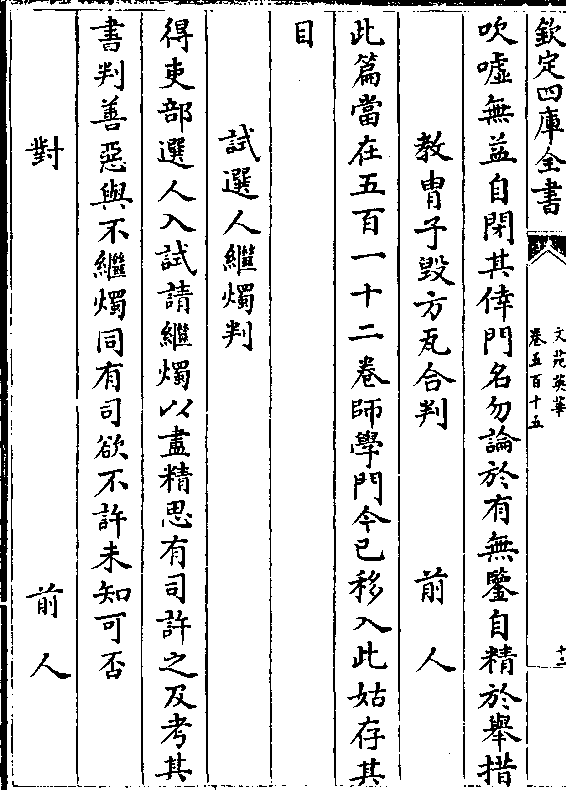 欽定四庫全書
文苑英華
卷五百十五
十二
吹噓無益自閉其倖門名勿論於有無鑒自精於舉措
教冑子毀方瓦合判 前人
此篇當在五百一十二卷師學門今已移入此姑存其
目
試選人繼燭判
得吏部選人入試請繼燭以盡精思有司許之及考其
書判善惡與不繼燭同有司欲不許未知可否
對 前人